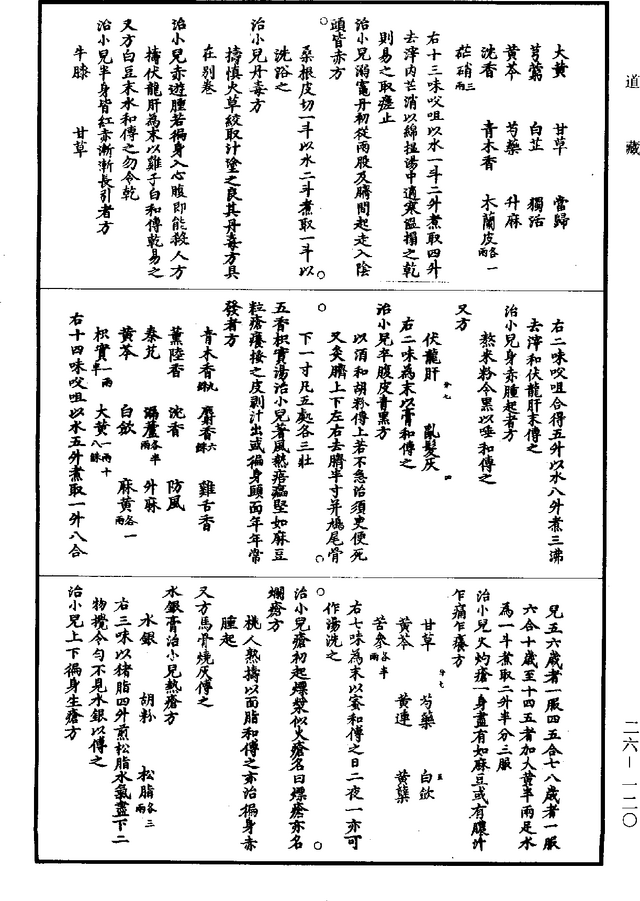 道藏
大黃　甘草　當歸
芎藭　白芷　獨活
黃芩　芍藥　升麻
沈香　青木香　木蘭皮各一兩
芒硝三兩
右十三味㕮咀以水一斗二升煮取四升
去滓內芒消以綿揾湯中適寒溫搨之乾
則易之取瘥止
治小兒溺竈丹初從兩股及臍間起走入陰
頭皆赤方
桑根皮切一斗以水二斗煮取一斗以
洗浴之
治小兒丹毒方
擣慎火草絞取汁塗之良其丹毒方具
在別卷
治小兒赤遊腫若徧身入心腹即能殺人方
擣伏龍肝為末以雞子白和傅乾易之
又方白豆末水和傅之勿令乾
治小兒半身皆紅赤漸漸長引者方
牛膝　甘草
右二味㕮咀合得五升以水八升煮三沸
去滓和伏龍肝末傅之
治小兒身赤腫起者方
熬米粉令黑以唾和傅之
又方
伏龍肝　亂髮灰
右二味為末以膏和傅之
治小兒卒腹皮青黑方
以酒和胡粉傅上若不急治須臾便死
又灸臍上下左右去臍半寸并鳩尾骨
下一寸凡五處各三壯
五香枳實湯治小兒著風熱㾦㿔堅如麻豆
粒瘡癢搔之皮剥汁出或徧身頭面年年常
發者方
青木香九銖　麝香六銖　雞舌香
薰陸香　沈香　防風
秦艽　漏蘆各半兩　升麻
黃芩　白歛　麻黃各一兩
枳實一兩半　大黃一兩十八銖
右十四味㕮咀以水五升煮取一升八合
兒五六歲者一服四五合七八歲者一服
六合十歲至十四五者加大黃半兩足水
為一斗煮取二升半分三服
治小兒火灼瘡一身盡有如麻豆或有膿汁
乍痛乍癢方
甘草　芍藥　白歛
黃芩　黃連　黃蘗
苦參各半兩
右七味為末以蜜和傅之日二夜一亦可
作湯洗之
治小兒瘡初起熛漿似火瘡名曰熛瘡亦名
爛瘡方
桃人熟擣以面脂和傅之亦治徧身赤
腫起
又方馬骨燒灰傅之
水銀膏治小兒熱瘡方
水銀　胡粉　松脂各三兩
右三味以猪脂四升煎松脂水氣盡下二
物攪令勻不見水銀以傅之
治小兒上下徧身生瘡方
二六－一二〇